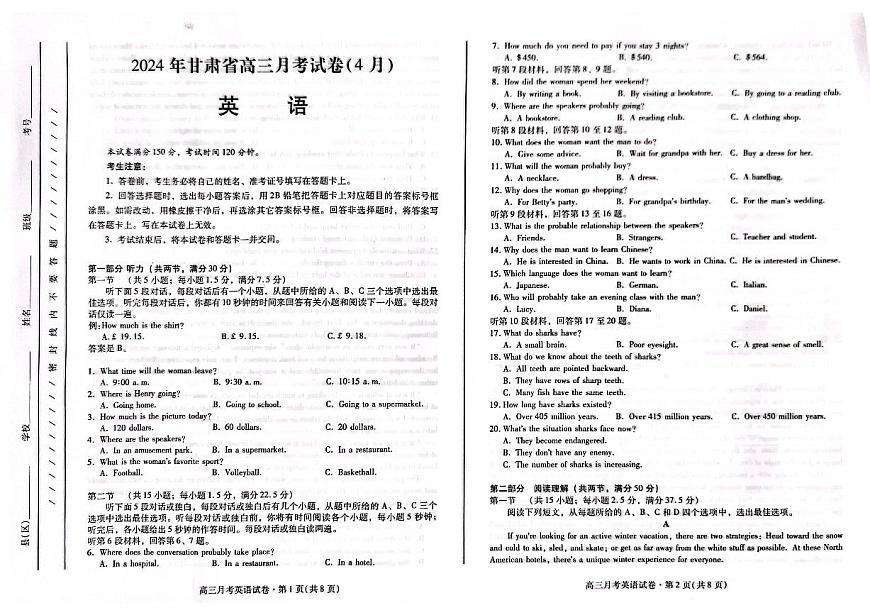 2024 年甘肃省高三月考试卷(4 月)
英 语
本试卷满分 150 分，考试时间 120 分钟。
考生注意：
1. 答卷前，考生务必将自己的姓名、准考证号填写在答题卡上。
2. 回答选择题时，选出每小题答案后，用 2B 铅笔把答题卡上对应题目的答案标号框
涂黑。如需改动，用橡皮擦干净后，再选涂其它答案标号框。回答非选择题时，将答案写
在答题卡上。写在本试卷上无效。
3. 考试结束后，将本试卷和答题卡一并交回。
第一部分 听力（共两节，满分 30 分）
第一节 （共 5 小题；每小题 1.5 分，满分 7.5 分）
听下面 5 段对话，每段对话后有一个小题，从题中所给的 A、B、C 三个选项中选出最
佳选项。听完每段对话后，你都有 10 秒钟的时间来回答有关小题和阅读下一小题。每段对
话仅读一遍。
例:How much is the shirt?
A. £ 19. 15. B. £ 9. 15. C. £ 9. 18.
答案是 B。
1. What time will the woman leave?
A. 9:00 a. m. B. 9:30 a. m. C. 10:15 a. m.
2. Where is Henry going?
A. Going home. B. Going to school. C. Going to a supermarket.
3. How much is the picture today?
A. 120 dollars. B. 60 dollars. C. 20 dollars.
4. Where are the speakers?
A. In an amusement park. B. In a supermarket. C. In a restaurant.
5. What is the woman's favorite sport?
A. Football. B. Volleyball. C. Basketball.
第二节 （共 15 小题；每小题 1.5 分，满分 22.5 分）
听下面 5 段对话或独白，每段对话或独白后有几个小题，从题中所给的 A、B、C 三个
选项中选出最佳选项。听每段对话或独白前，你将有时间阅读各个小题，每小题 5 秒钟；
听完后，各小题给出 5 秒钟的作答时间。每段对话或独白读两遍。
听第 6 段材料，回答第 6、7 题。
6. Where does the conversation probably take place?
A. In a hospital. B. In a restaurant. C. In a hotel.
高三月考英语试卷·第 1 页(共 8 页)
7. How much do you need to pay if you stay 3 nights?
A. $ 450. B. $ 540. C. $ 564.
听第 7 段材料，回答第 8、9 题。
8. How did the woman spend her weekend?
A. By writing a book. B. By visiting a bookstore. C. By going to a reading club.
9. Where are the speakers probably going?
A. A bookstore. B. A reading club. C. A clothing shop.
听第 8 段材料，回答第 10 至 12 题。
10. What does the woman want the man to do?
A. Give some advice. B. Wait for grandpa with her. C. Buy a dress for her.
11. What will the woman probably buy?
A. A necklace. B. A dress. C. A handbag.
12. Why does the woman go shopping?
A. For Betty's party. B. For grandpa's birthday. C. For the man's wedding.
听第 9 段材料，回答第 13 至 16 题。
13. What is the probable relationship between the speakers?
A. Friends. B. Strangers. C. Teacher and student.
14. Why does the man want to learn Chinese?
A. He is interested in China. B. He wants to work in China. C. He is interested in Chinese.
15. Which language does the woman want to learn?
A. Japanese. B. German. C. Italian.
16. Who will probably take an evening class with the man?
A. Lucy. B. Diana. C. Daniel.
听第 10 段材料，回答第 17 至 20 题。
17. What do sharks have?
A. A small brain. B. Poor eyesight. C. A great sense of smell.
18. What do we know about the teeth of sharks?
A. All teeth are pointed backward.
B. They have rows of sharp teeth.
C. Many fish have the same teeth.
19. How long have sharks existed?
A. Over 405 million years. B. Over 415 million years. C. Over 450 million years.
20. What's the situation sharks face now?
A. They become endangered.
B. They don't have any enemy.
C. The number of sharks is increasing.
第二部分 阅读理解（共两节，满分 50 分）
第一节 （共 15 小题；每小题 2.5 分，满分 37.5 分）
阅读下列短文，从每题所给的 A、B、C 和 D 四个选项中，选出最佳选项。
A
If you're looking for an active winter vacation, there are two strategies: Head toward the snow
and cold to ski, sled, and skate; or get as far away from the white stuff as possible. At these North
American hotels, there's a unique winter experience for everyone.
高三月考英语试卷·第 2 页(共 8 页)
县(区)
学校
姓名
班级
考号
密 封 线 内 不 要 答 题